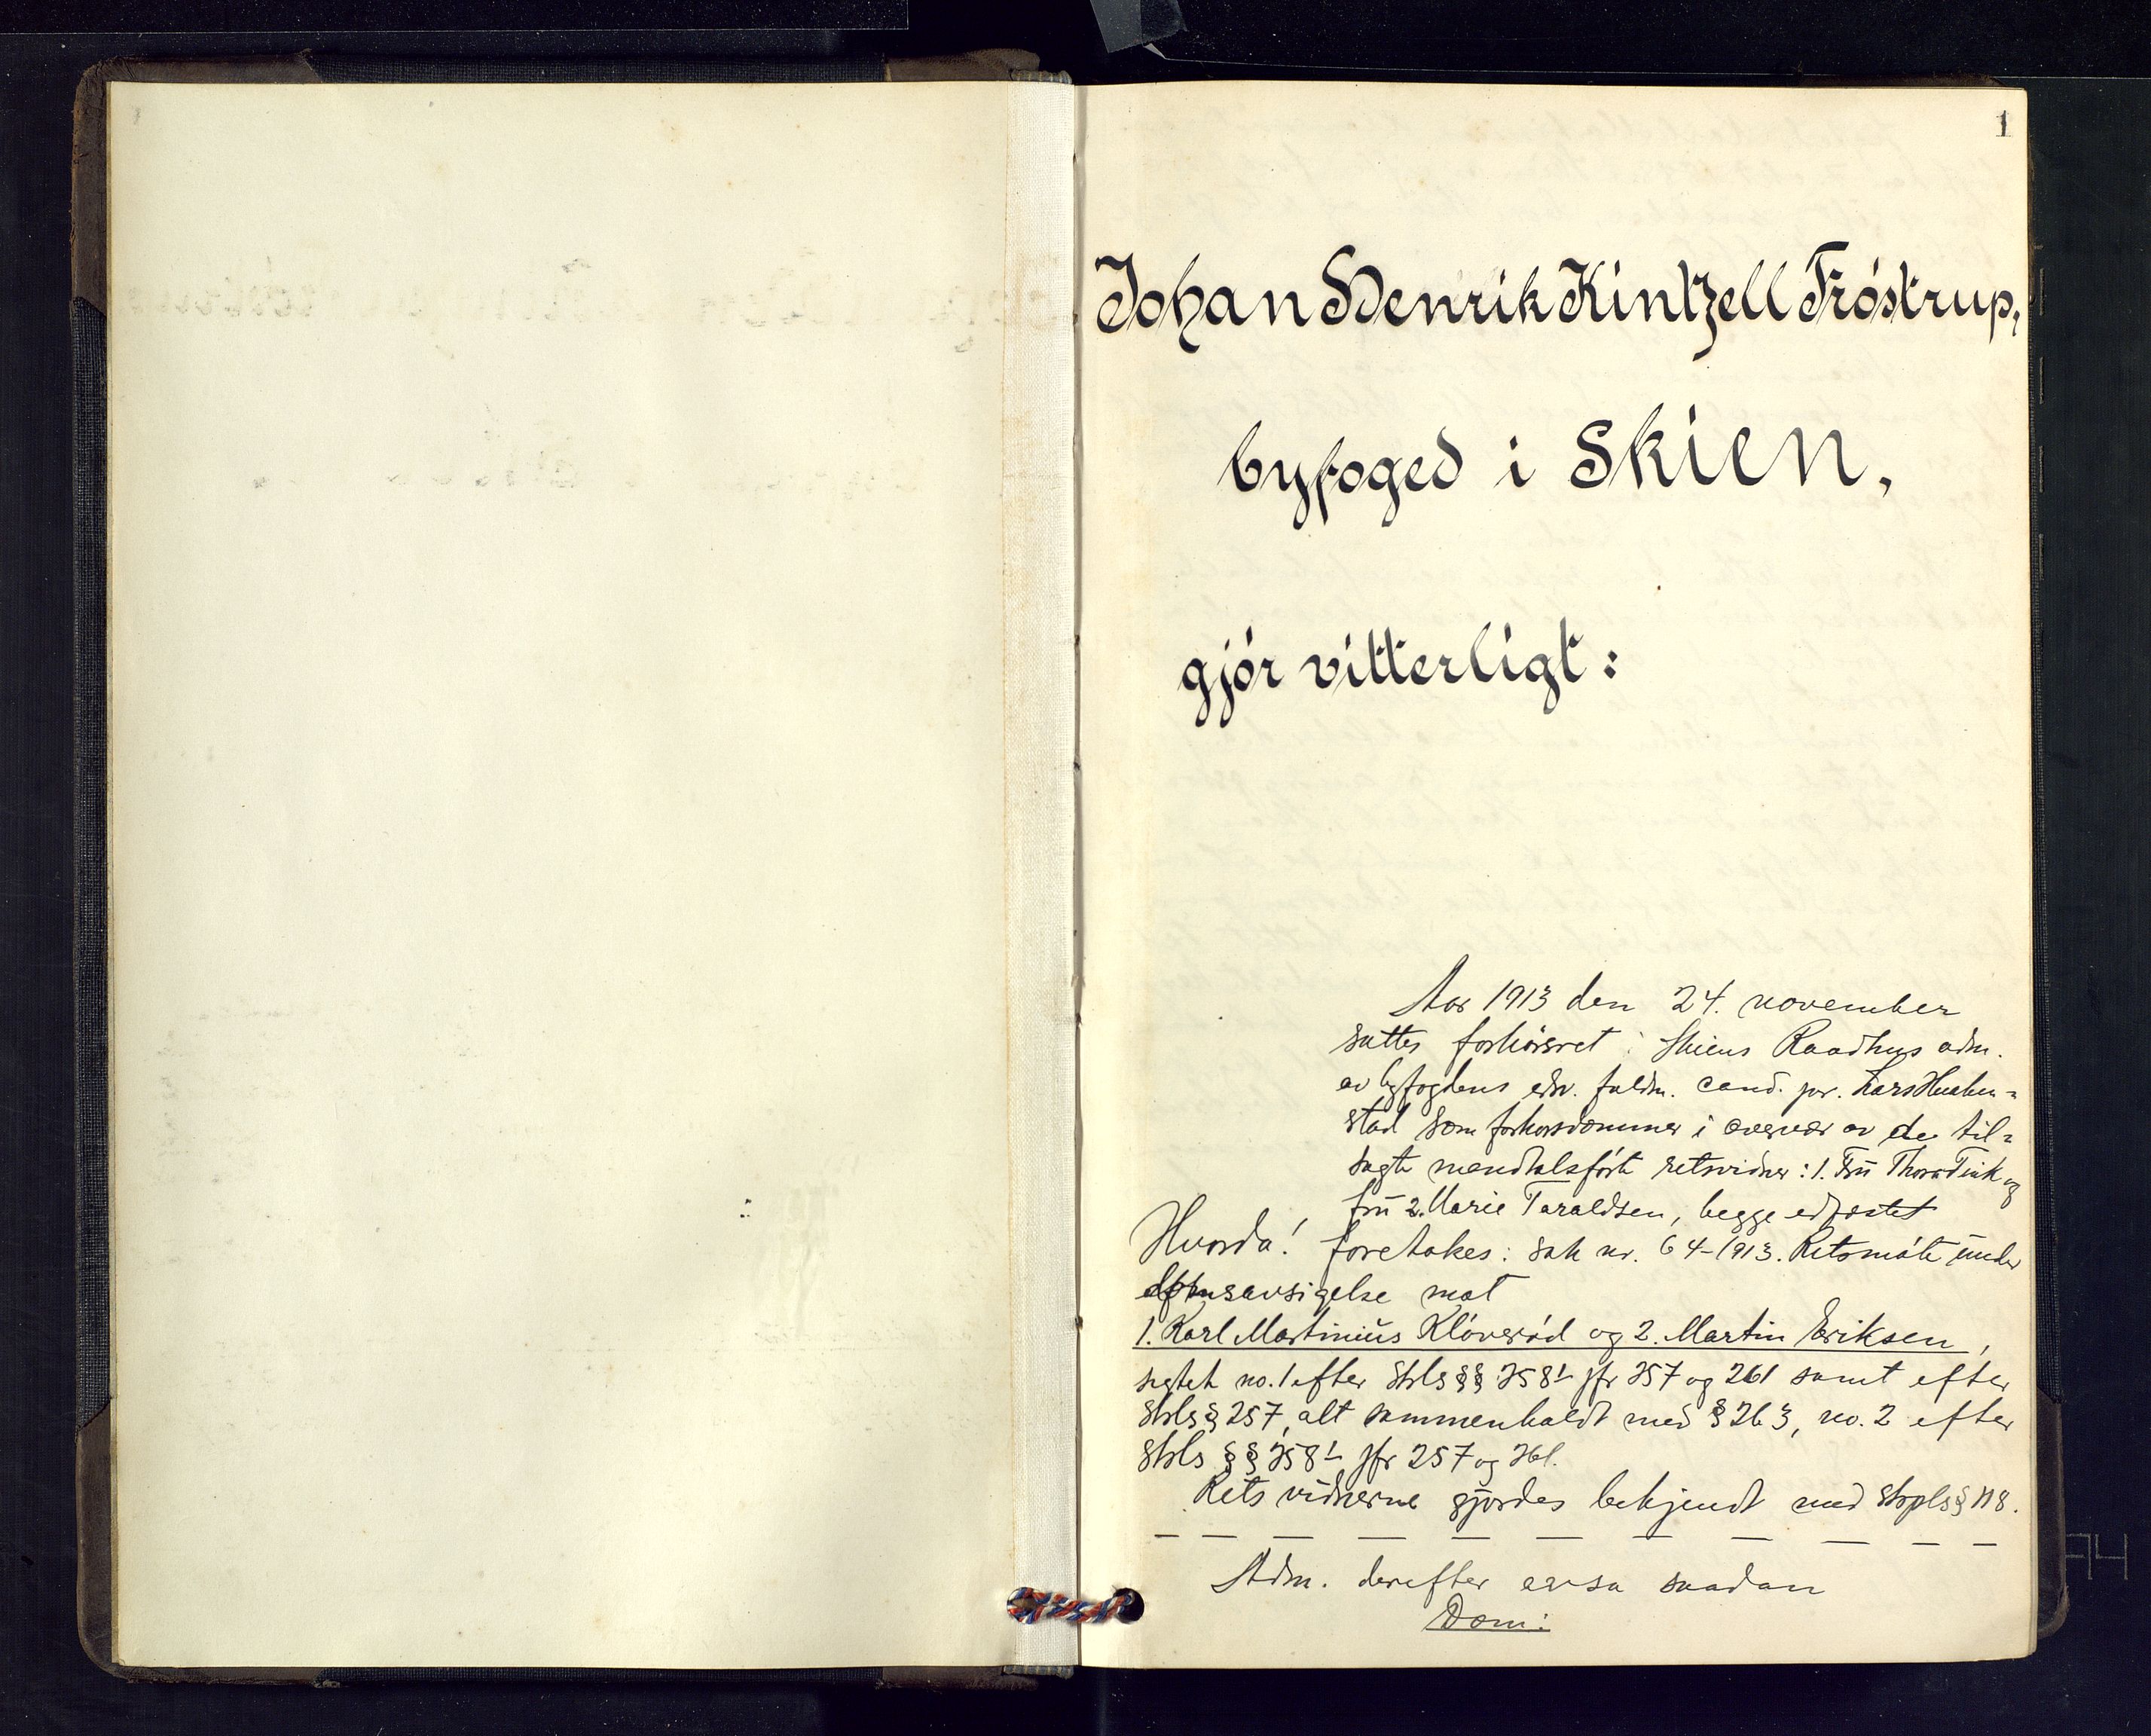 1
Johan Henrik Kintzell Fróstrup,
byfoged i Skien,
gjór vitterligt:
Aar 1913 den 24. november
sattes forhórsret i Skiens Raadhus adm.
av byfogdens edsv. fuldm. cand. jur. Lars
stad som forhórsdommer i overvær av de til-
sagte mandtalsførte retsvidner: 1. Frú Thora Fink og
frú 2. Marie Taraldsen, begge edfæstet
Hvorda! foretokes: sak nr. 64-1913. Retsmóte únder
domsavsigelse mot
1. Karl Martiniús Klóveród og 2. Martin Eriksen,
sigtet no. 1 efter Strls §§ 258¹ jfr 257 og 261 samt efter
Strls § 257, alt sammenholdt med § 263, no. 2 efter
Strls §§ 258¹ jfr 257 og 261.
Retsvidnerne gjordes bekjendt med Strpls § 118.
— — — — — — — — — — —
Adm. derefter avsa saadan
Dom: